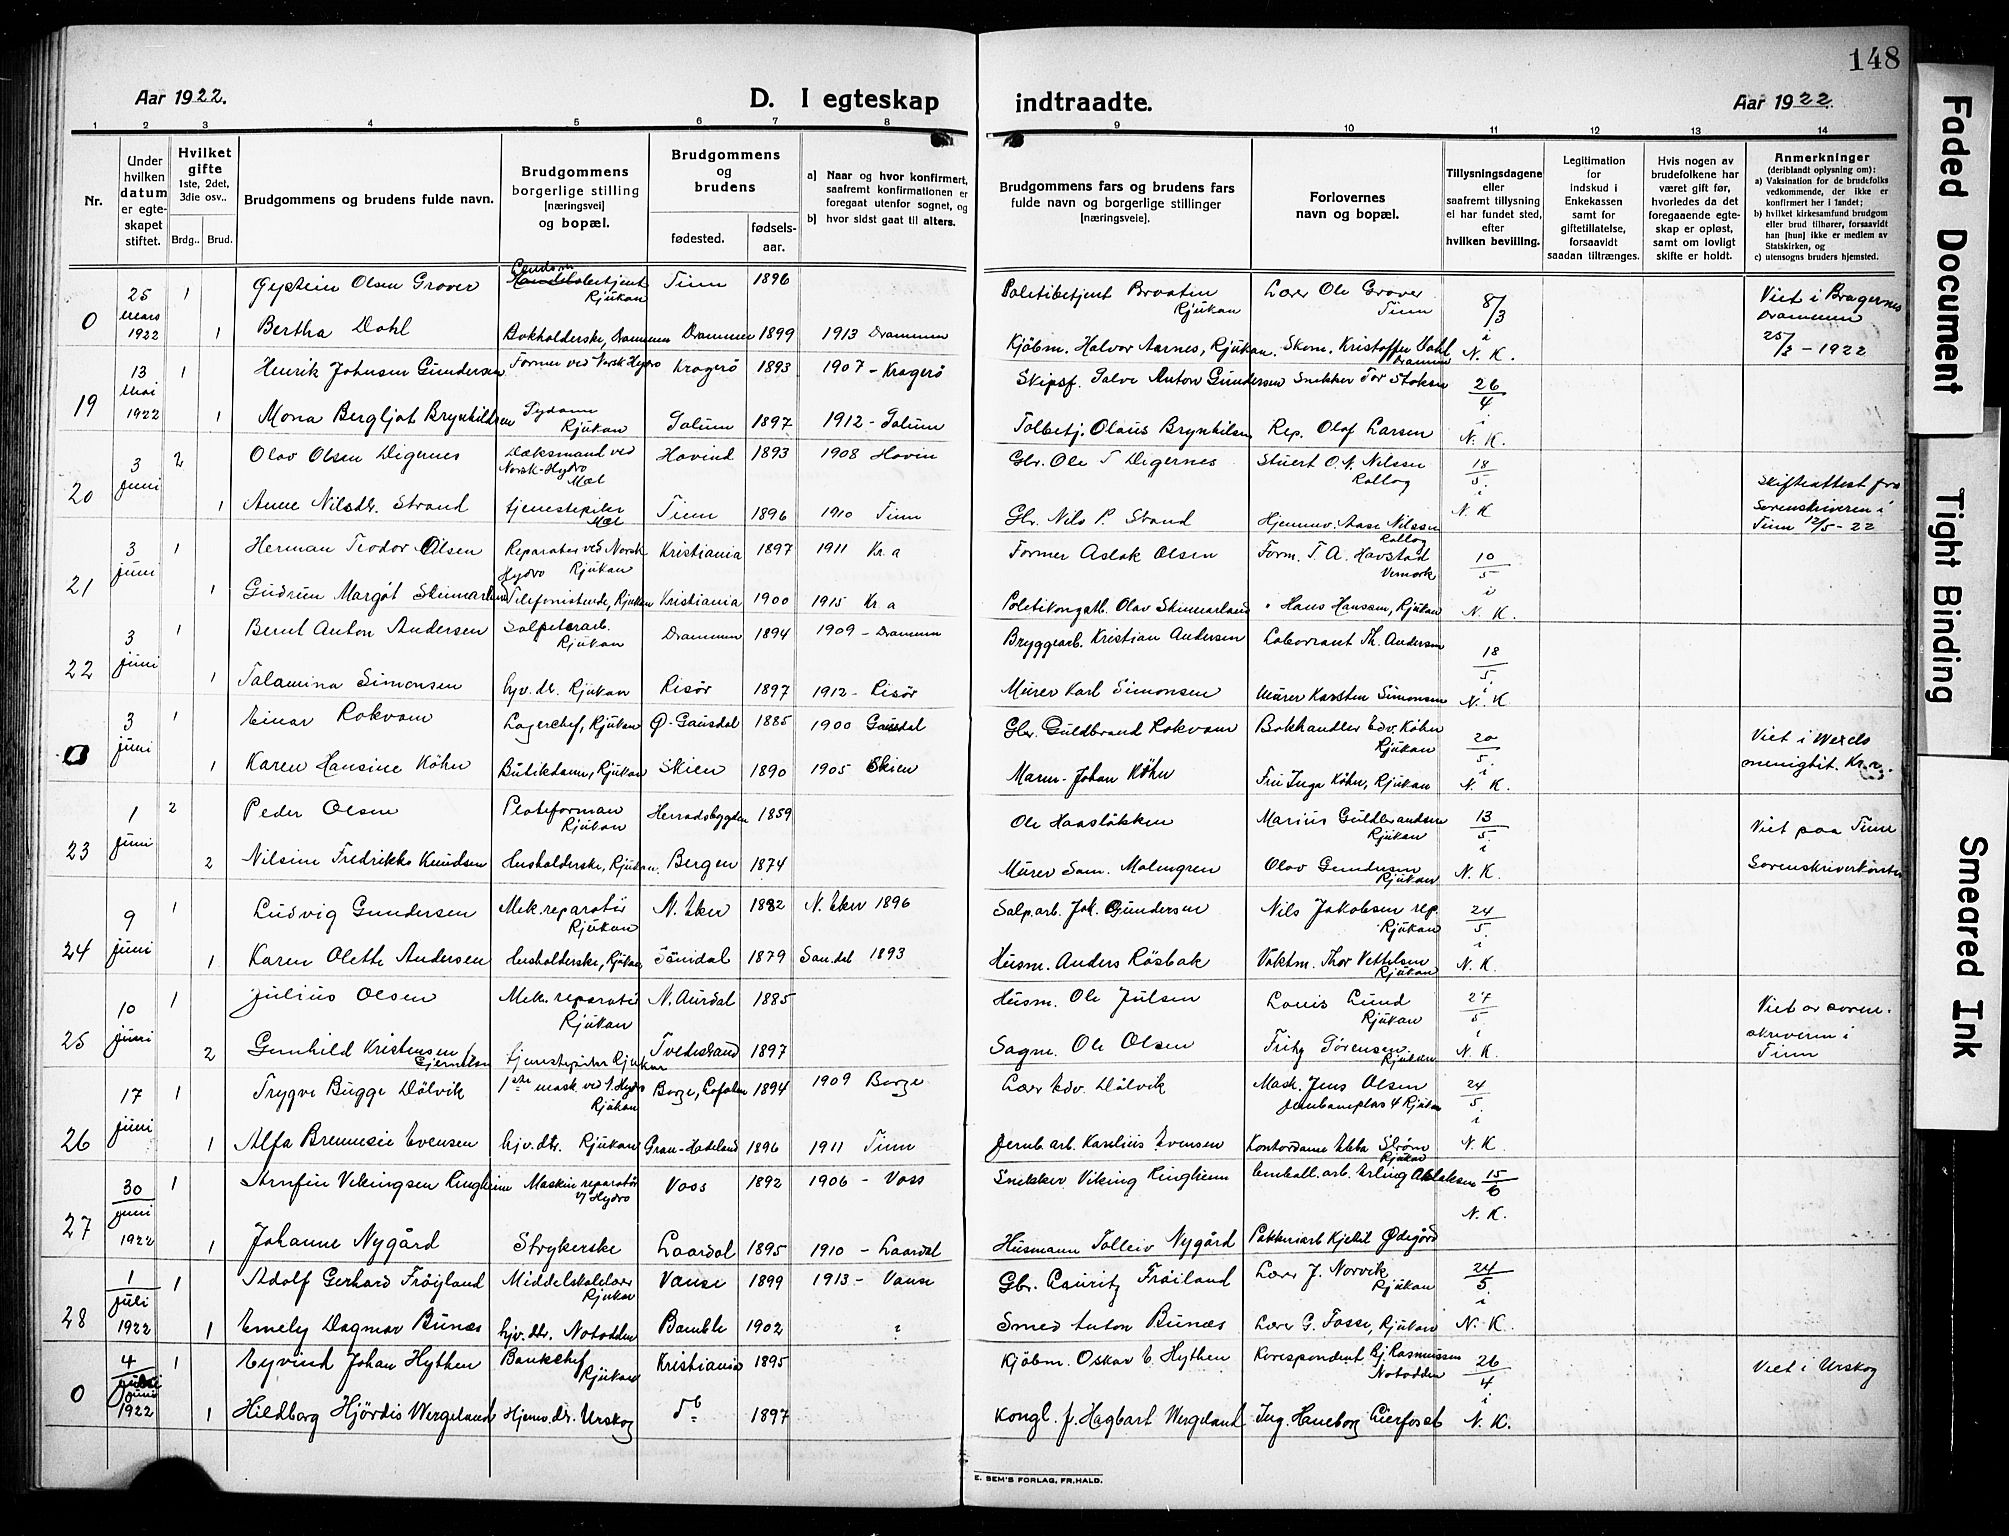 148
Aar 1922.
D. I egteskap
indtraadte.
Aar 1922.
1 2 3 4 5 6 7 8 9 10 11 12 13 14
Nr.
Under hvilken datum er egteskapet stiftet.
Hvilket gifte 1ste, 2det, 3die osv..
Brdg.. Brud.
Brudgommens og brudens fulde navn.
Brudgommens borgerlige stilling [næringsvei] og bopæl.
Brudgommens og brudens
fødested. fødselsaar.
a) Naar og hvor konfirmert, saafremt konfirmationen er foregaat utenfor sognet, og
b) hvor sidst gaat til alters.
Brudgommens fars og brudens fars fulde navn og borgerlige stillinger [næringsveie].
Forlovernes navn og bopæl.
Tillysningsdagene eller saafremt tillysning ei har fundet sted, efter hvilken bevilling.
Legitimation for indskud i Enkekassen samt for giftetillatelse, forsaavidt saadan tiltrænges.
Hvis nogen av brudefolkene har været gift før, hvorledes da det foregaaende egteskap er opløst, samt om lovligt skifte er holdt.
Anmerkninger (deriblandt oplysning om):
a) Vaksination for de brudefolks vedkommende, der ikke er konfirmert her i landet;
b) hvilket kirkesamfund brudgom eller brud tilhører, forsaavidt han [hun] ikke er medlem av Statskirken, og
c) utensogns bruders hjemsted.
0 25 Mars 1922 1 Øystein Olsen Grover Rjukan Tinn 1896 Politibetjent Braaten Rjukan Lærer Ole Grover Tinn 8/3 i N. K. Viet i Bragernes Drammen 25/3 - 1922
1 Bertha Dahl Bokholderske, Drammen Drammen 1899 1913 Drammen Kjøbm. Halvor Aarnes, Rjukan. Skom. Kristoffer Dahl Drammen
19 13 mai 1922 1 Henrik Johnsen Gundersen Former ved Norsk Hydro Kragerö 1893 1907 - Kragerö Skipsf. Salve Anton Gundersen Snekker Tor Stoksen 26/4 i N. K.
1 Mona Bergljot Brynhildsen Sydame Rjukan Solum 1897 1912 - Solum Tolbetj. Olaus Brynhilsen Rep. Olaf Larsen
20 3 juni 2 Olav Olsen Digernes Dæksmand ved Norsk-Hydro Mæl Hovind 1893 1908 Hovin Gbr. Ole T Digernes Stuert O. N. Nilssen Rollag 18/5 i N. K Skifteattest fra Sorenskriveren i Tinn 12/5 - 22
1 Anne Nilsdr. Strand tjenestepike Mæl Tinn 1896 1910 Tinn Gbr. Nils P. Strand Hjemmev. Aase Nilssen Rollag
21 3 juni 1 Herman Teodor Olsen Reparatør ved Norsk Hydro Rjukan Kristiania 1897 1911 Kr.a Former Aslak Olsen Form. T. A. Havstad Vemork 10/5 i N. K.
1 Gudrun Margot Skinnarland Telefonistinde, Rjukan Kristiania 1900 1915 Kr.a Politikonstb. Olav Skinnarland " Hans Hanssen, Rjukan
22 3 juni 1 Bernt Anton Andersen Salpeterarb. Rjukan Drammen 1894 1909 - Drammen Bryggearb. Kristian Andersen Laborant Th. Andersen 18/5 i N. K
1 Talamina Simonsen hjv. dt. Rjukan Risör 1897 1912 - Risör Murer Karl Simonsen Murer Karsten Simonsen
0 3 juni 1 Einar Rokvam Lagerchef, Rjukan Ø. Gausdal 1885 1900 Gausdal Gbr. Guldbrand Rokvam Bokhandler Edv. Köhn Rjukan 20/5 i N. K. Viet i Wexels menighet. Kr.a.
1 Karen Hansine Köhn Butikdame, Rjukan Skien 1890 1905 Skien Mask. Johan Köhn Fru Inga Köhn, Rjukan
23 1 juni 2 Peder Olsen Plateformann Rjukan Herradsbygden 1859 Ole Haaslökken Marius Guldbrandsen Rjukan 13/5 i N. K. Viet paa Tinn Sorenskriverkontor
2 Nilsine Fredrikke Knudsen Husholderske, Rjukan. Bergen 1874 Murer Sam. Malmgren Olav Gundersen Rjukan
24 9 juni 1 Ludvig Gundersen Mek. reparatör Rjukan N. Eker 1882 N. Eker 1896 Salp. arb. Joh. Gundersen Nils Jakobsen rep. Rjukan 24/5 i N. K.
1 Karen Olette Andersen Husholderske, Rjukan Sandal 1879 San.del 1893 Husm. Anders Rösbak Vaktm. Thor Vettelsen Rjukan
25 10 juni 1 Julius Olsen Mek. reparatör Rjukan N. Aurdal 1885 Husm. Ole Julsen Louis Lund Rjukan 27/5 i N. K. Viet av sorenskriveren i Tinn
2 Gunhild Kristensen Gjerndsen tjenestepike Rjukan Tvedestrand 1897 Sagm. Ole Olsen Fritz Sörensen Rjukan
26 17 juni 1 Trygve Bugge Dölvik 1ste mask. ved N. Hydro Rjukan Borge, Lofoten 1894 1909 Borge Lærer Edv. Dölvik Mask. Jens Olsen Jernbaneplas 4 Rjukan 24/5 i N. K.
1 Alfa Brennesie Evensen hjv. dtr. Rjukan Gran-Hadeland 1896 1911 Tinn Jernb. arb. Karelius Evensen Kontordame Ebba Ström Rjukan
27 30 juni 1922 1 Arnfin Vikingsen Ringheim Maskin reparatör v/ Hydro Voss 1892 1906 - Voss Snekker Viking Ringheim Emball. arb. Erling Aslaksen 15/6 N. K.
1 Johanne Nygård Strykerske Laardal 1895 1910 - Laardal Husmann Tolleiv Nygård Pakkeriarb Kjetil Ödegård
28 1 juli 1922 1 Adolf Gerhard Fröyland Middelskolelærer Rjukan Vanse 1899 1913 - Vanse Gbr. Lauritz Fröiland Lærer J. Norvik Rjukan 24/5 i N. K.
1 Emely Dagmar Bunæs hjv. dtr. Notodden Bamble 1902 " Smed Anton Bunæs Lærer G. Fosse, Rjukan
0 4 juni 1922 1 Eyvind Johan Hythen Bankchef Rjukan Kristiania 1895 Kjöbm. Oskar E. Hythen Korespondent Bj. Rasmussen Notodden 26/4 i N. K. Viet i Urskog
1 Hildborg Hjördis Wergeland Hjemv. dt. Urskog do 1897 Kongl. f. Hagbart Wergeland Ing. Haneborg Lierfoset
E. SEM'S FORLAG, FR.HALD.
Faded Document
Tight Binding
Smeared Ink